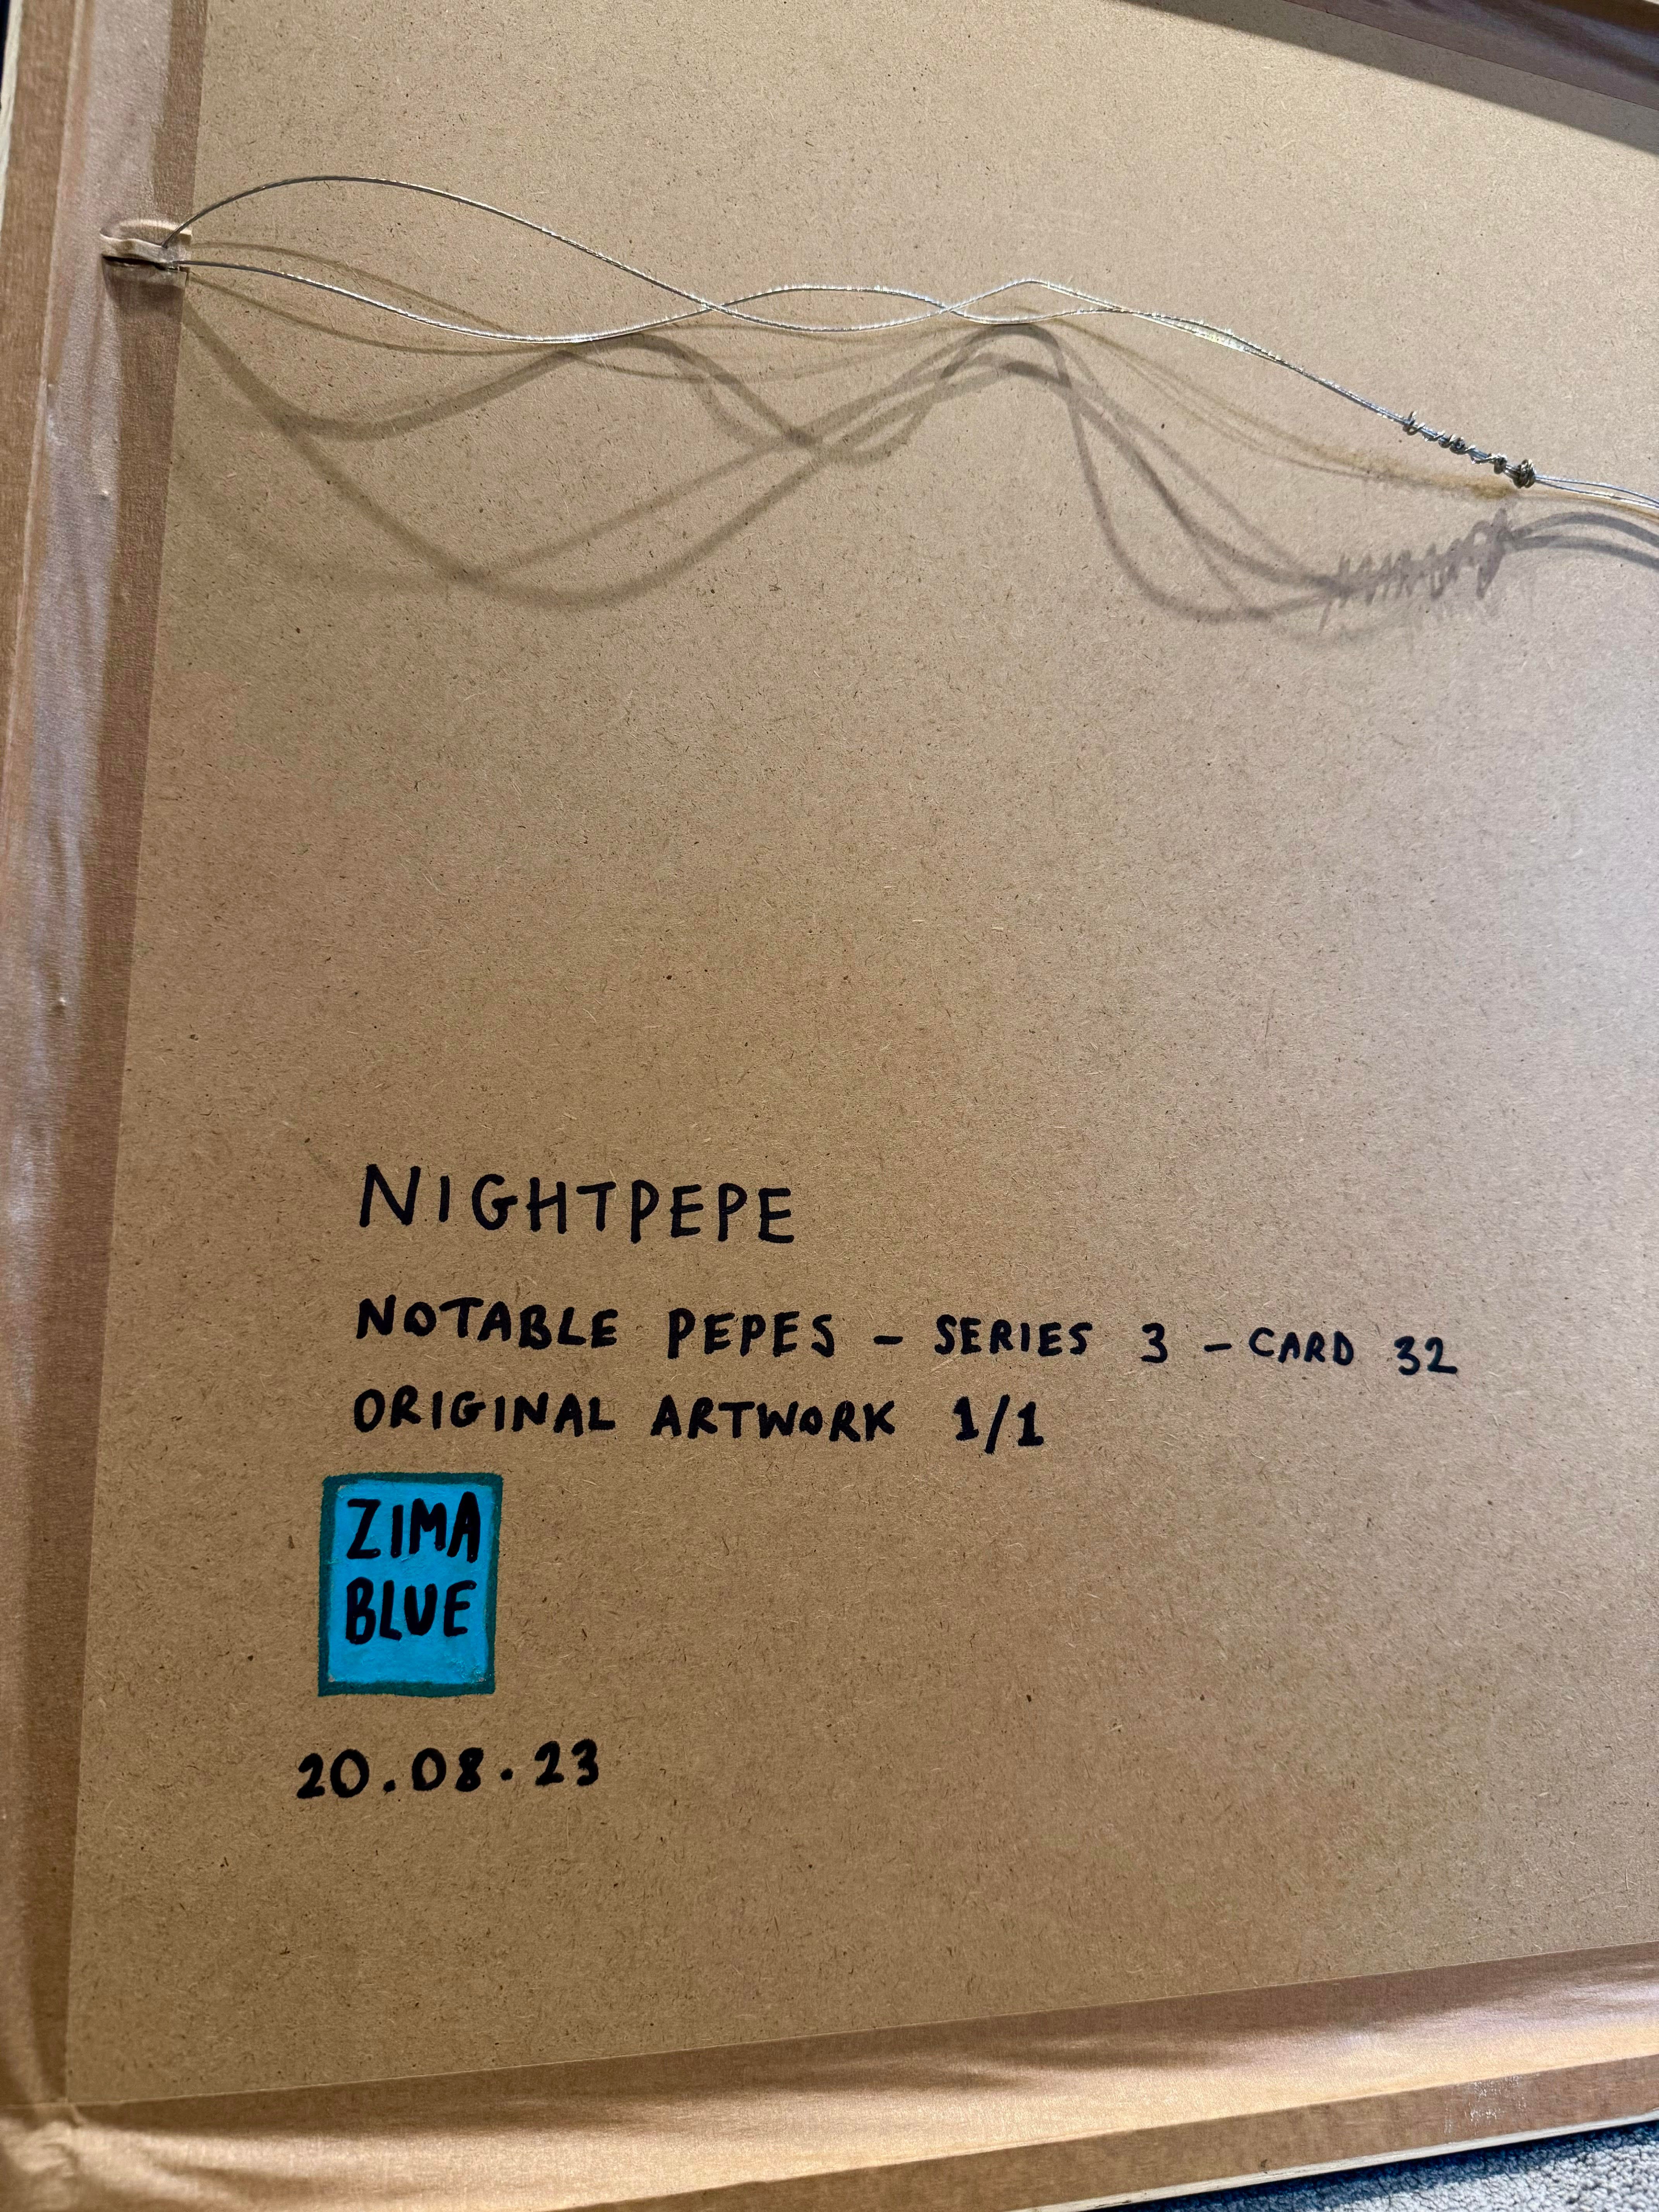 NIGHTPEPE
NOTABLE PEPES - SERIES 3 - CARD 32
ORIGINAL ARTWORK 1/1
ZIMA
BLUE
20.08.23